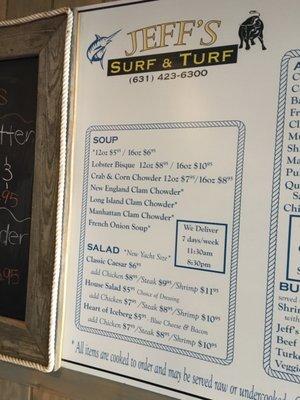 JEFF'S
SURF & TURF
(631) 423-6300
SOUP
*12oz $5⁹⁵ / 16oz $6⁹⁵
Lobster Bisque 12oz $8⁹⁵ / 16oz $10⁹⁵
Crab & Corn Chowder 12oz $7⁹⁵/16oz $8⁹⁵
New England Clam Chowder*
Long Island Clam Chowder*
Manhattan Clam Chowder*
French Onion Soup*
We Deliver
7 days/week
11:30am
8:30pm
SALAD *New Yacht Size*
Classic Caesar $6⁹⁵
add Chicken $8⁹⁵/Steak $9⁹⁵/Shrimp $11⁹⁵
House Salad $5⁹⁵ Choice of Dressing
add Chicken $7⁹⁵/Steak $8⁹⁵/Shrimp $10⁹⁵
Heart of Iceberg $5⁹⁵ Blue Cheese & Bacon
add Chicken $7⁹⁵/Steak $8⁹⁵/Shrimp $10⁹⁵
* All items are cooked to order and may be served raw or undercooked.
&
BU
Shrimp
with
Jeff's
Beef
Turk
Veggie